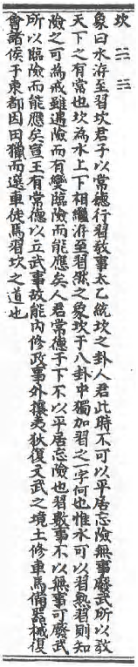 坎 ☵ ☵
象曰水洊至習坎君子以常德行習敎事太乙統坎之卦人君此時不可以平居忘險無事廢武所以敎
天下之有常也坎為水上下相繼洊至習然之象坎于八卦中獨加習之一字何也惟水可以習熟習則知
險之可為戒雖遇險而有變臨險而能應矣人君常德于下不以平居忘險也習敎事不以無事可廢武
所以臨險而能應矣宣王有常德以立武事故能內修政事外攘夷狄復文武之境土修車馬備器械復
會諸侯于東都因田獵而選車徒焉習坎之道也